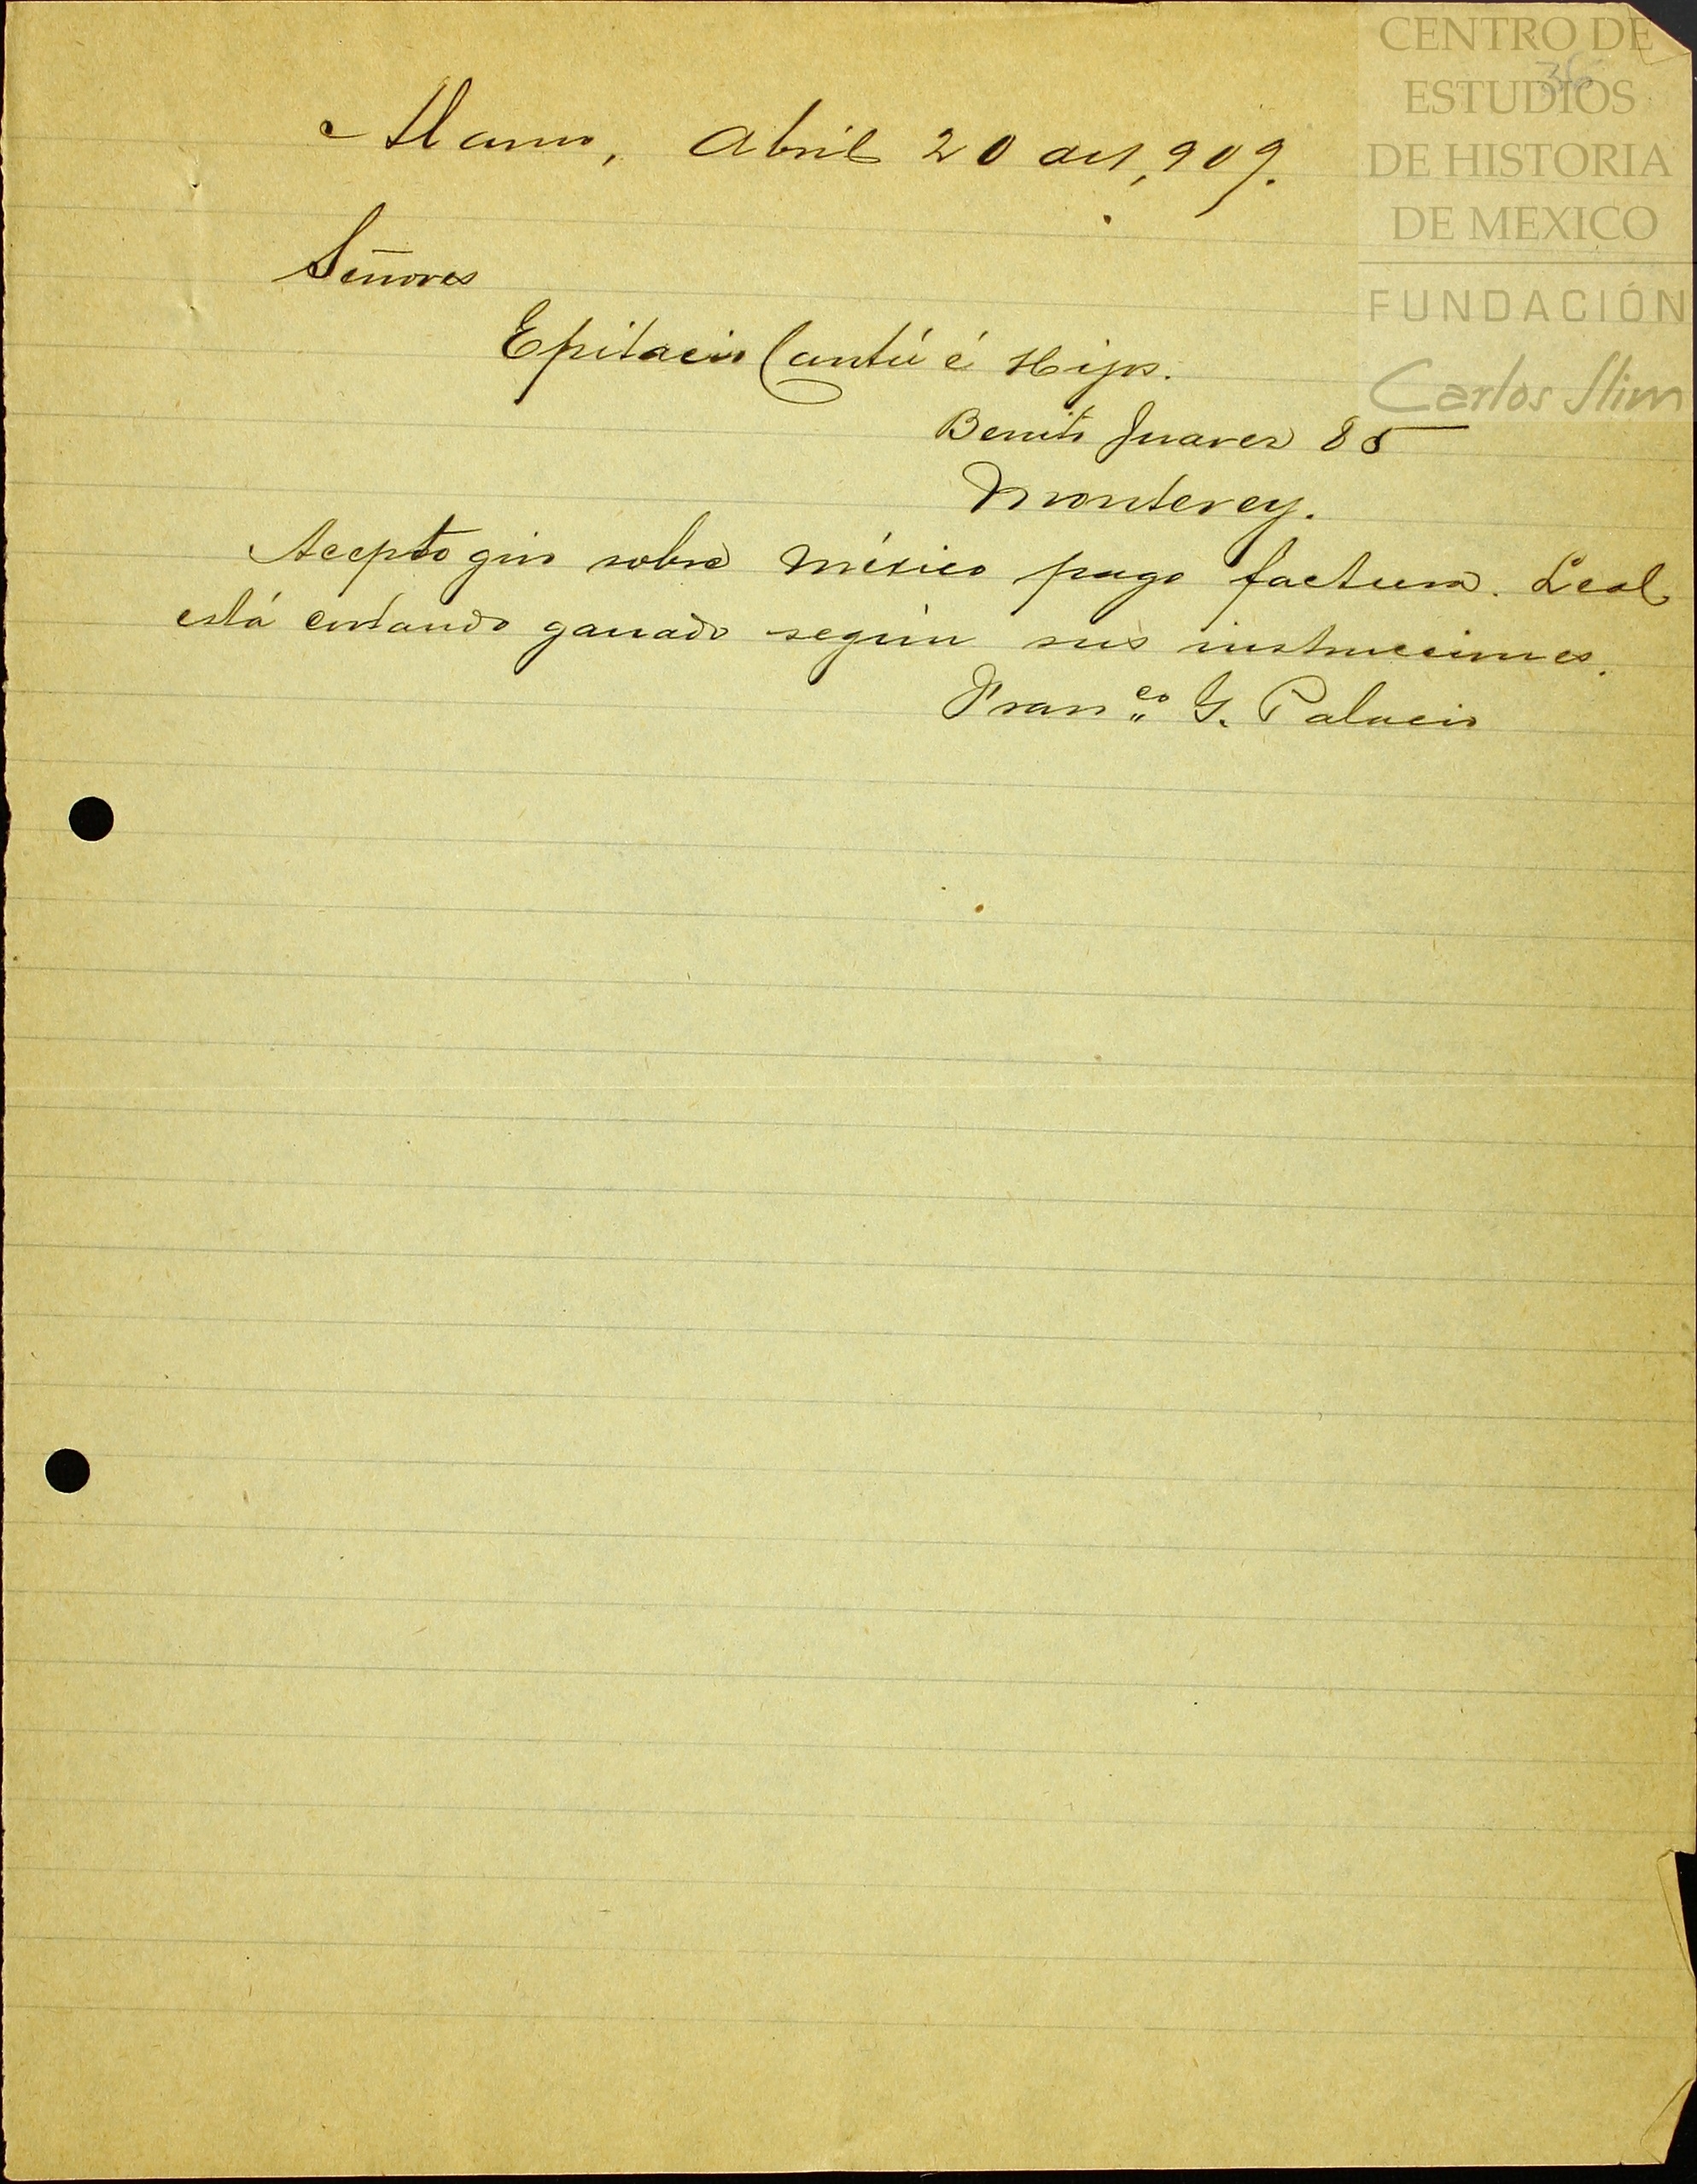 CENTRO DE
ESTUDIOS
DE HISTORIA
DE MEXICO
FUNDACIÓN
Carlos Slim
36
Alamo, Abril 20 de 1,909.
Señores
Epitacio Cantú é Hijos.
Benito Juarez 85
Monterey.
Acepto giro sobre México pago factura. Leal
está cortando ganado según sus instrucciones.
Fran.co G. Palacio